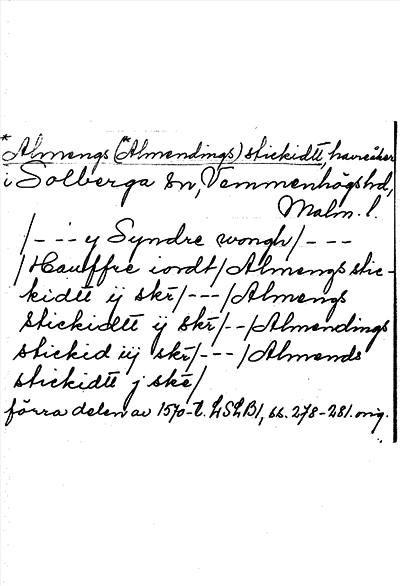 *Almengs (*Almendings) stickidtt, havreåker
i Solberga sn, Vemmenhögs hd,
Malm. l.
/--- y Syndre wongh/---
/Hauffre iordt/Almengs stic-
kidtt ij skr/---/Almengs
stickidtt ij skr/--/Almendings
stickid iij skr/---/Almends
stickidtt j skr/
förra delen av 1570-t. LSLB1, ss. 278-281. orig.